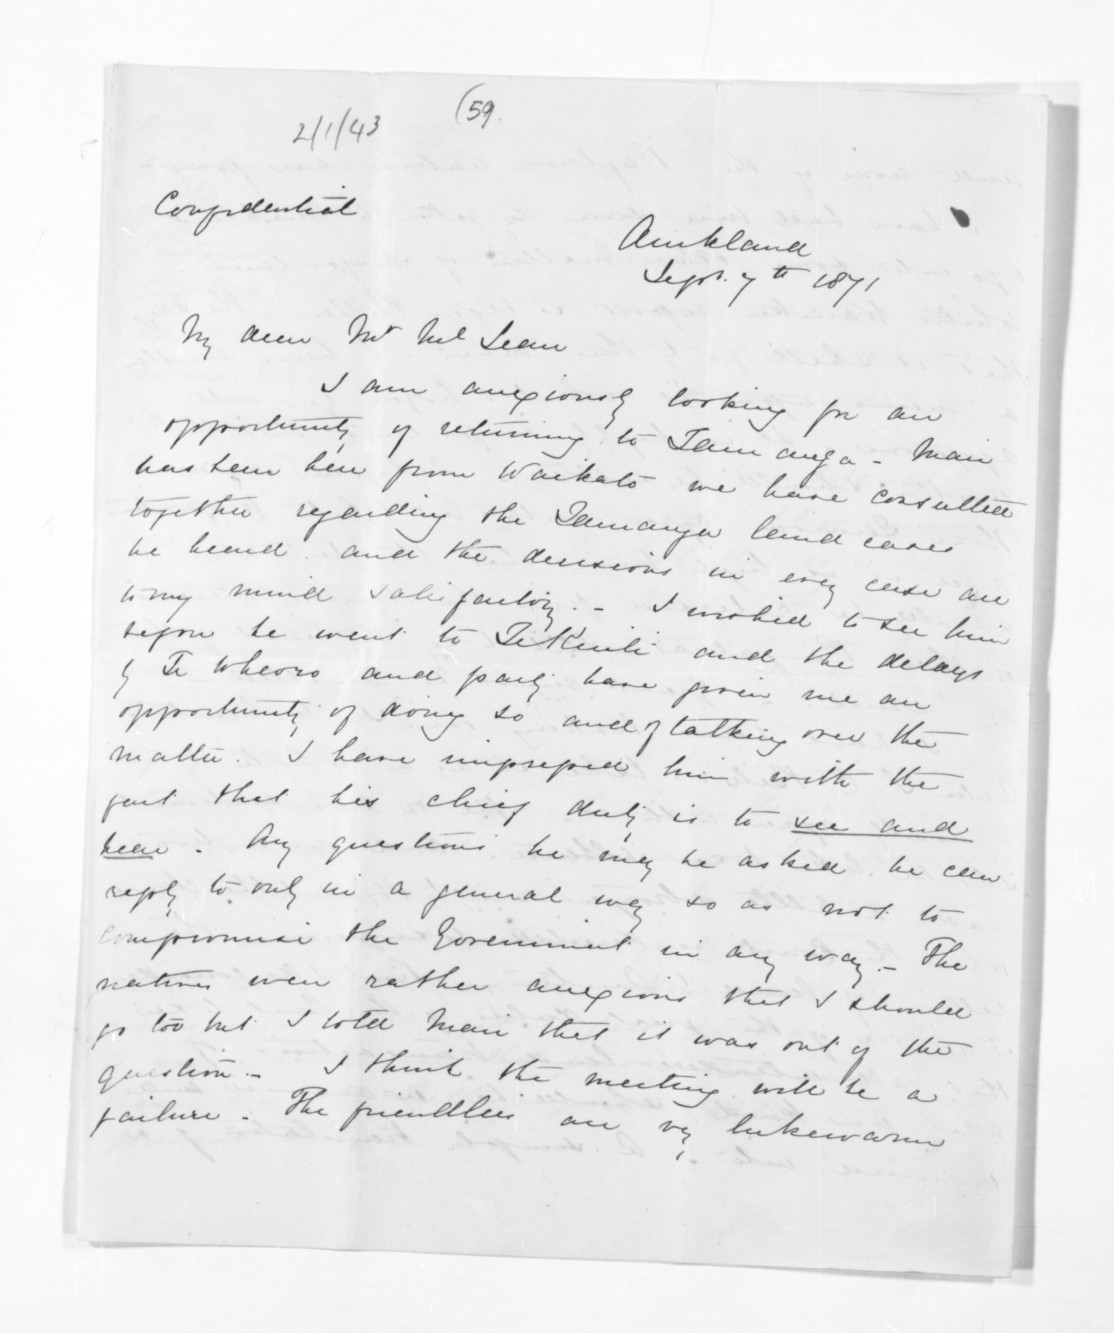 (59.
2/1/43
Confidential
Auckland
Sept. 7th 1871
My dear Mr McLean
I am anxiously looking for an
opportunity of returning to Tauranga - Mair
has been here from Waikato we have consulted
together regarding the Tauranga land cases
he heard. and the decisions in every case are
to my mind satisfactory. - I wished to see him
before he went to Te Kuiti and the delays
of Te Wheoro and party have given me an
opportunity of doing so and of talking over the
matter. I have impressed him with the
fact that his chief duty is to see and
hear. Any questions he may be asked he can
reply to only in a general way so as not to
compromise the Government in any way. - The
natives were rather anxious that I should
go too but I told Mair that it was out of the
question - I think the meeting will be a
failure - The friendlies are very lukewarm